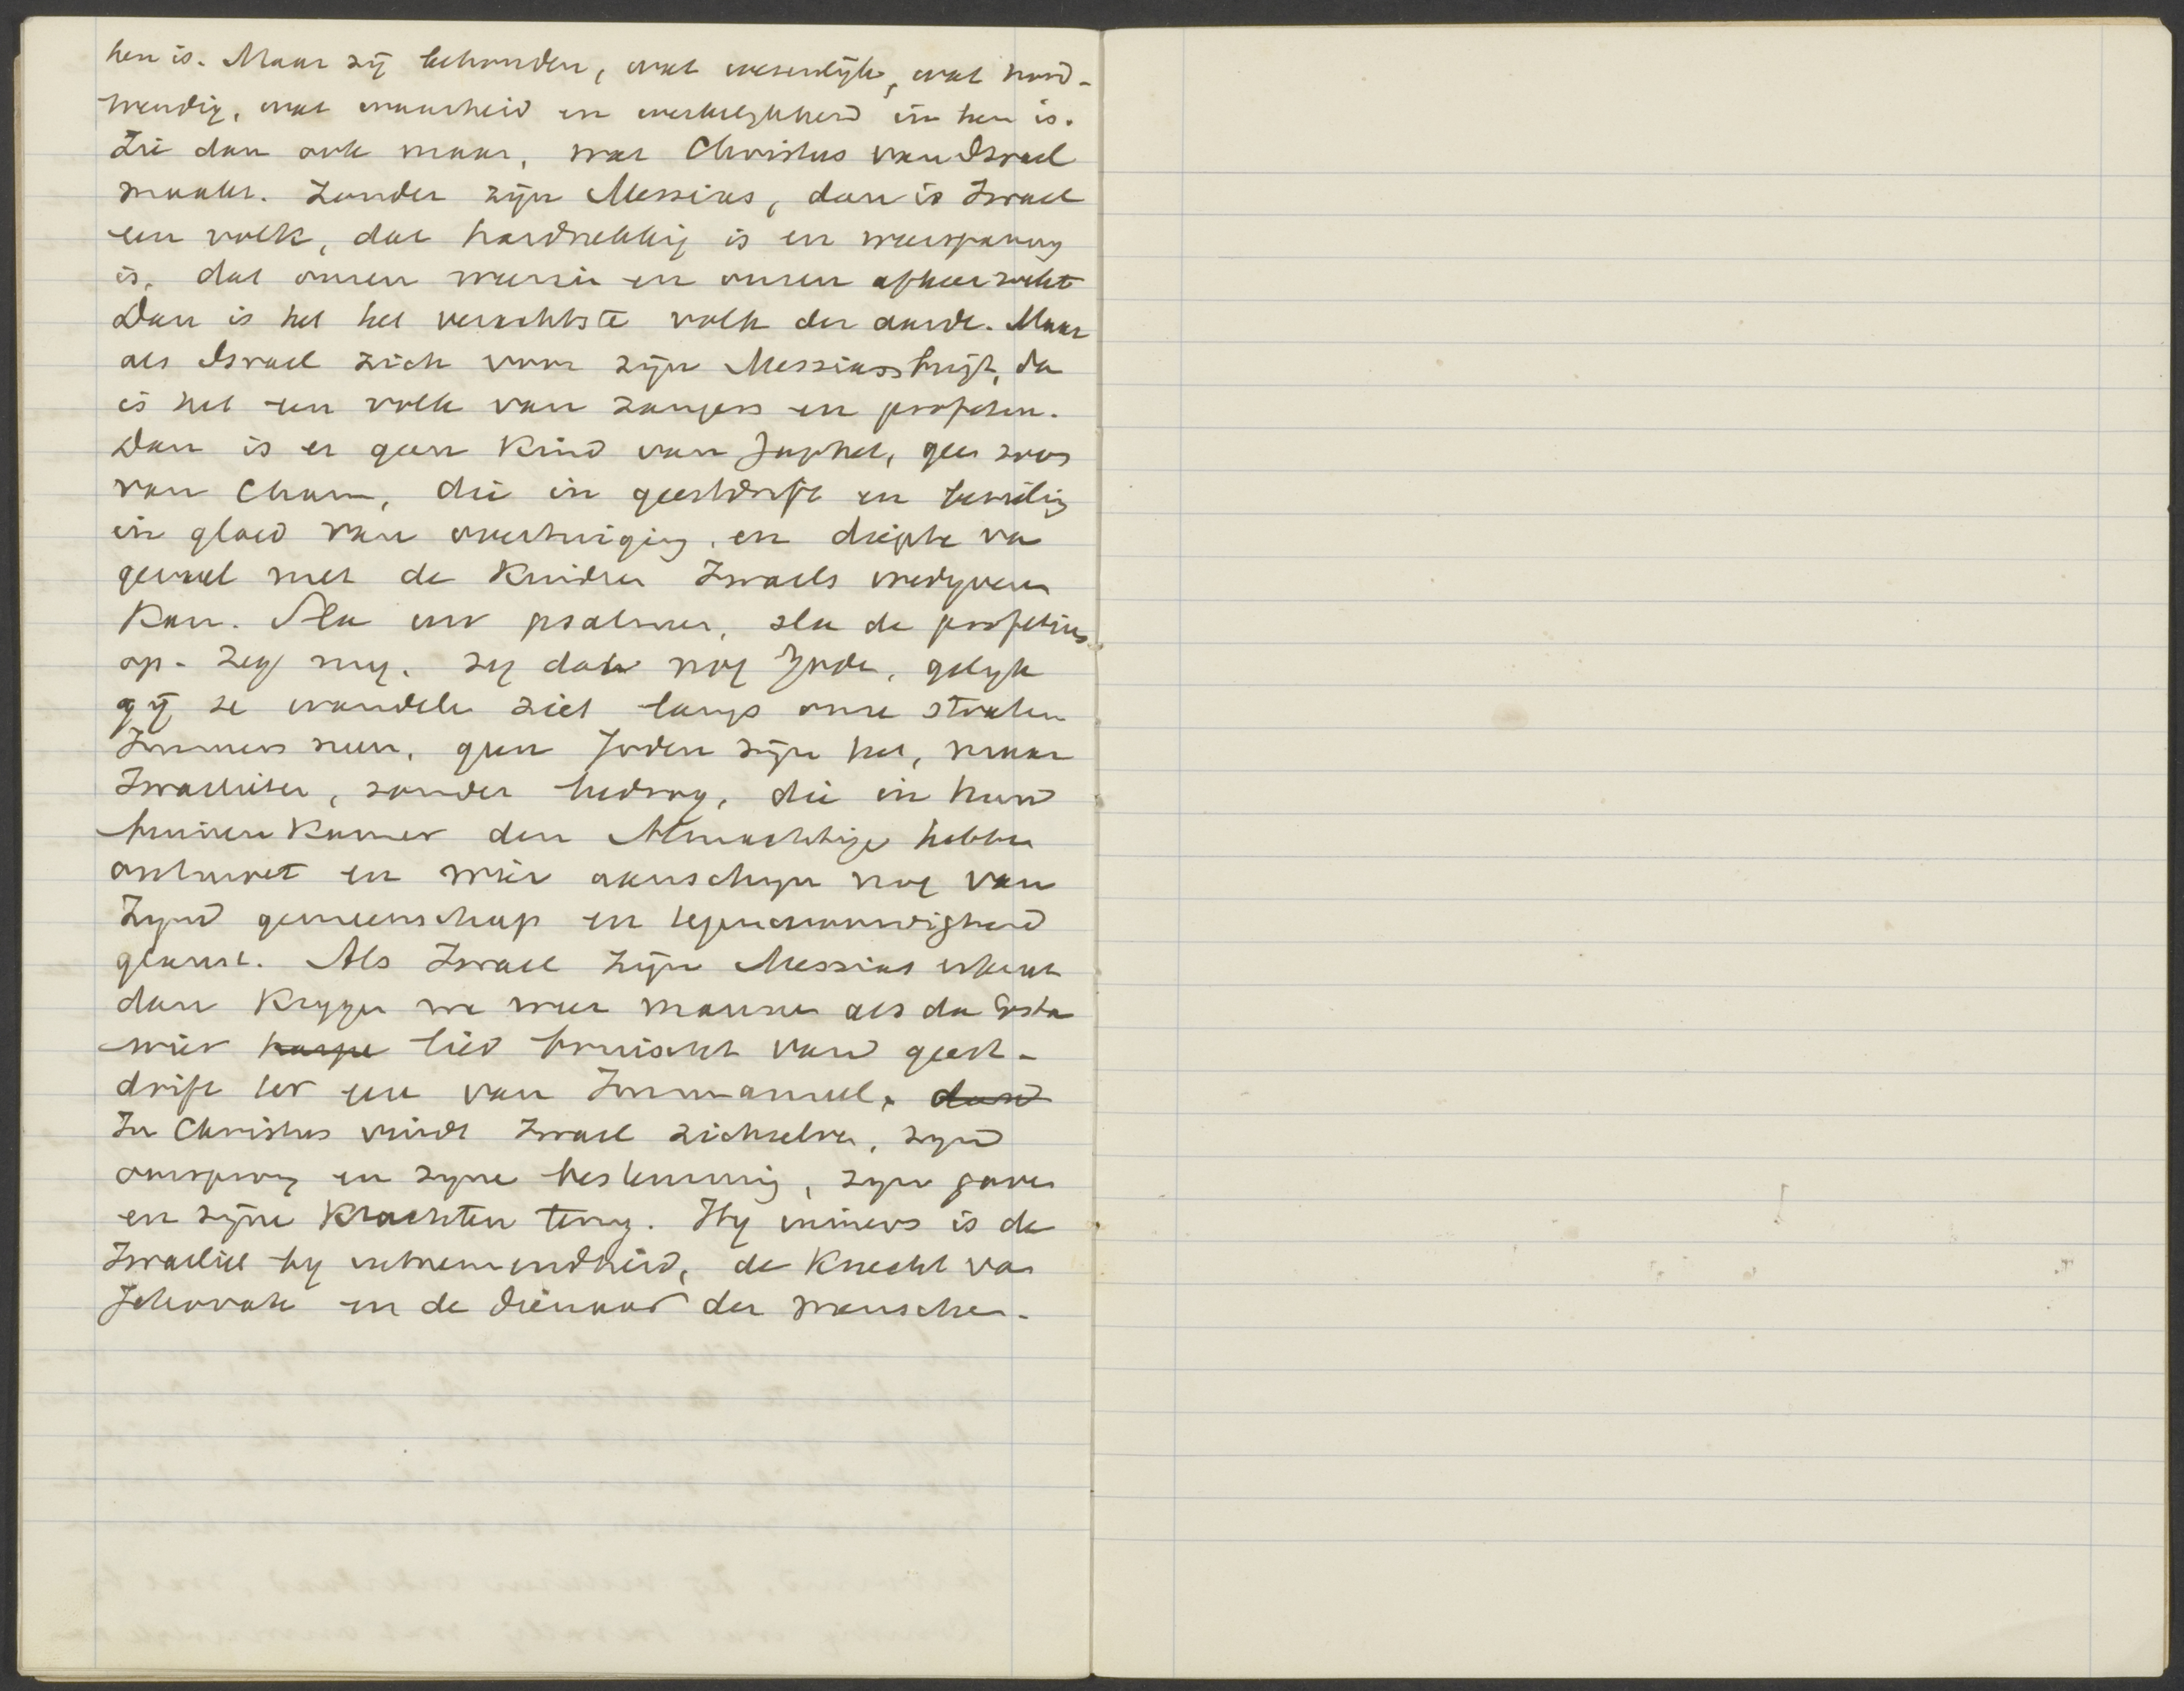 hen is. Maar zij behouden, wat wesenlijk, wat nood-
wendig, wat waarheid en werkelijkheid in hen is.
Zie dan ook maar, wat Christus van Israel
maakt. Zonder zijn Messias, dan is Israel
een volk, dat hardnekkig is en weerspannig
is, dat onzen weerzin en onzen afkeer wekt
Dan is het het verachtste volk der aarde. Maar
als Israel zich voor zijn Messias buigt, da
is het een volk van zangers en profeten.
Dan is er geen Kind van Japhet, geen zoon
van Cham, die in geestdrift en bezieling
in gloed van overtuiging, en diepte va
gevoel met de Kindren Israels wedyveren
Kan. Sla uw psalmen, sla de profetien
op. Zeg my. zy dat nog Joden, gelyk
gij ze wandelen ziet langs onze straten
Immers neen, geen Joden zijn het, maar
Israelieten, zonder bedrog, die in hun
binnenkamer den Almachtige hebben
ontmoet en wier aanschyn nog van
Zyn gemeenschap en tegenwoordigheid
glanst. Als Israel zijn Messias erkent
dan Krygen we weer mannen als da Costa
wier harpe lied bruischt van geest-
drift ter eer van Immanuel. dan
In Christus vindt Israel zichzelven, zyn
oorsprong en zyne bestemming, zyn gaven
en zijne Krachten terug. Hy immers is de
Israeliet by uitnemendheid, de Knecht van
Jehovah en de dienaar der menschen.